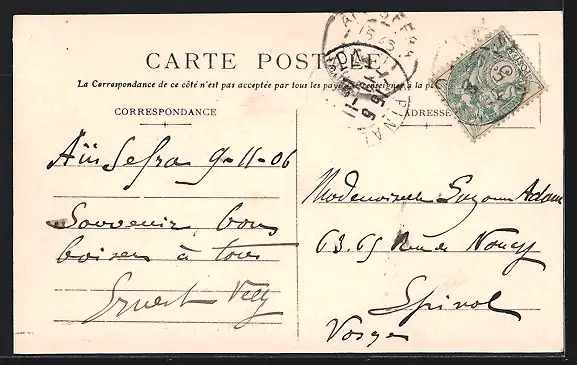 CARTE POSTALE
La Correspondance de ce côté n'est pas acceptée par tous les pays
CORRESPONDANCE
ADRESSE
Aïn Sefra 9-11-06
Souvenir, bons
baisers à tous
Ernest
Mademoiselle Suzanne Adam
63.65 Rue de Nancy
Epinal
Vosges